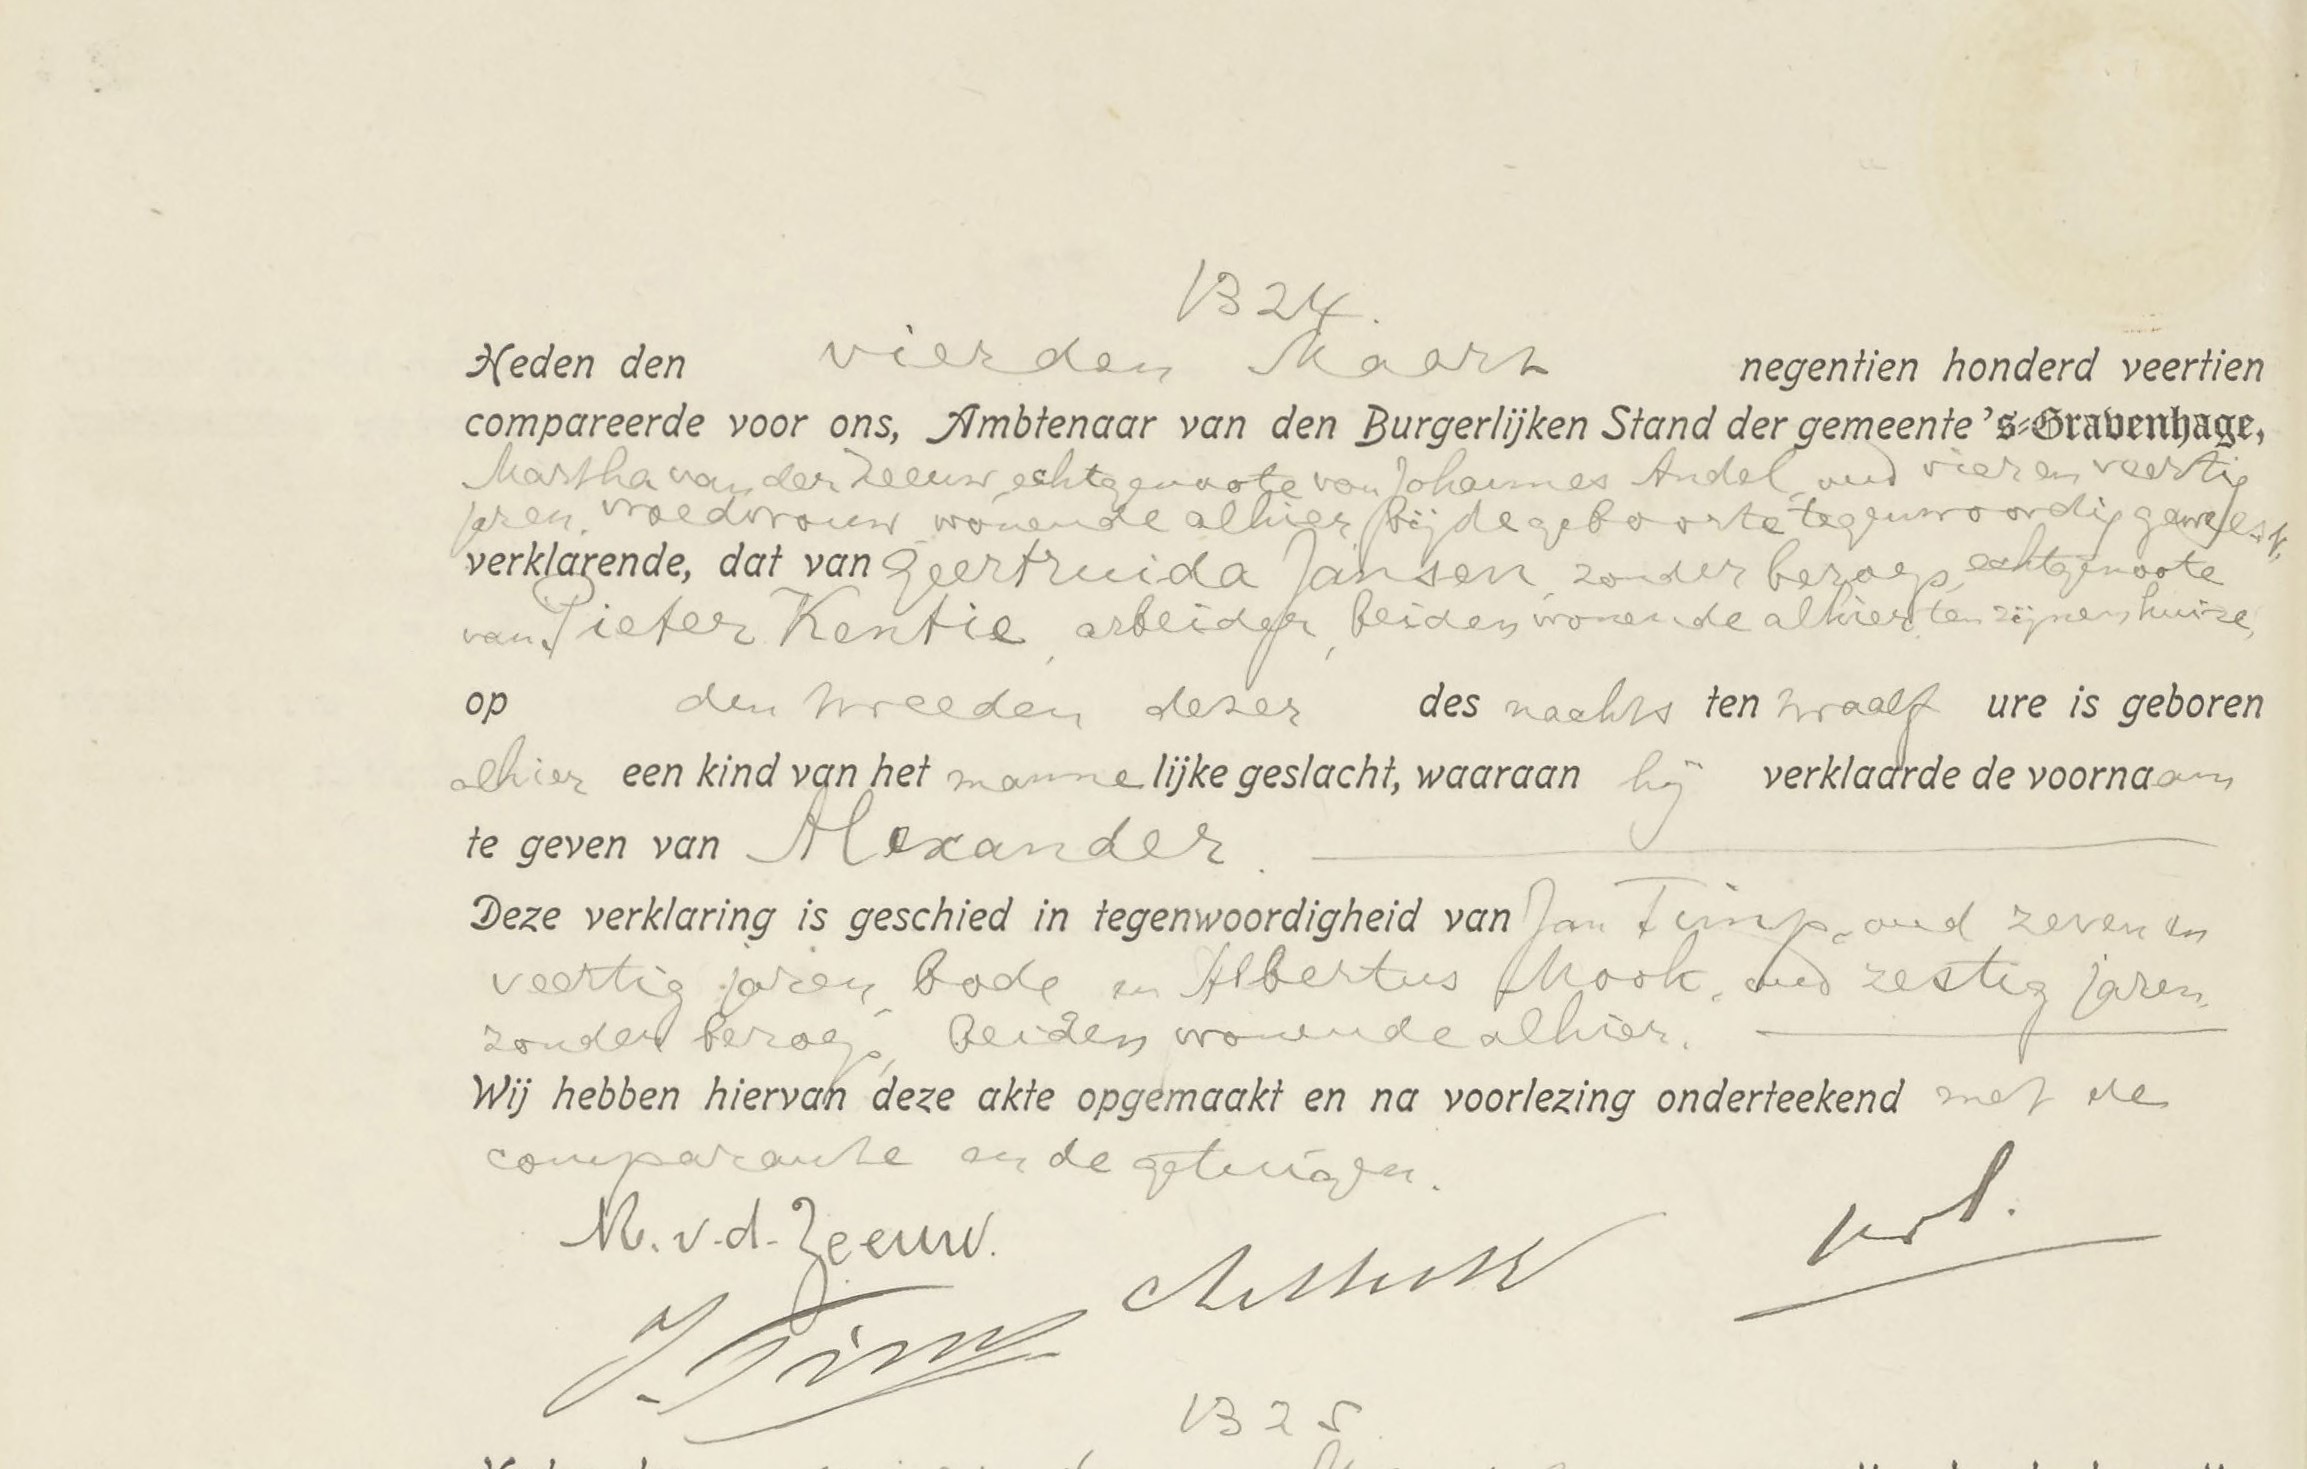 1324.
Heden den vierden Maart negentien honderd veertien
compareerde voor ons, Ambtenaar van den Burgerlijken Stand der gemeente 's-Gravenhage,
Martha van der Zeeuw echtgenoote van Johannes Andel, oud vier en veertig
jaren, vroedvrouw wonende alhier, bij de geboorte tegenwoordig geweest,
verklarende, dat van Geertruida Jansen zonder beroep, echtgenoote
van Pieter Kentie, arbeider, beiden wonende alhier, ten zijnen huize,
op den tweeden dezer des nachts ten twaalf ure is geboren
alhier een kind van het mannelijke geslacht, waaraan hij verklaarde de voornaam
te geven van Alexander.
Deze verklaring is geschied in tegenwoordigheid van Jan Timp, oud zeven en
veertig jaren, bode en Albertus Mook, oud zestig jaren,
zonder beroep, beiden wonende alhier.
Wij hebben hiervan deze akte opgemaakt en na voorlezing onderteekend met de
comparante en de getuigen.
M. v. d. Zeeuw.
J. Timp
1325